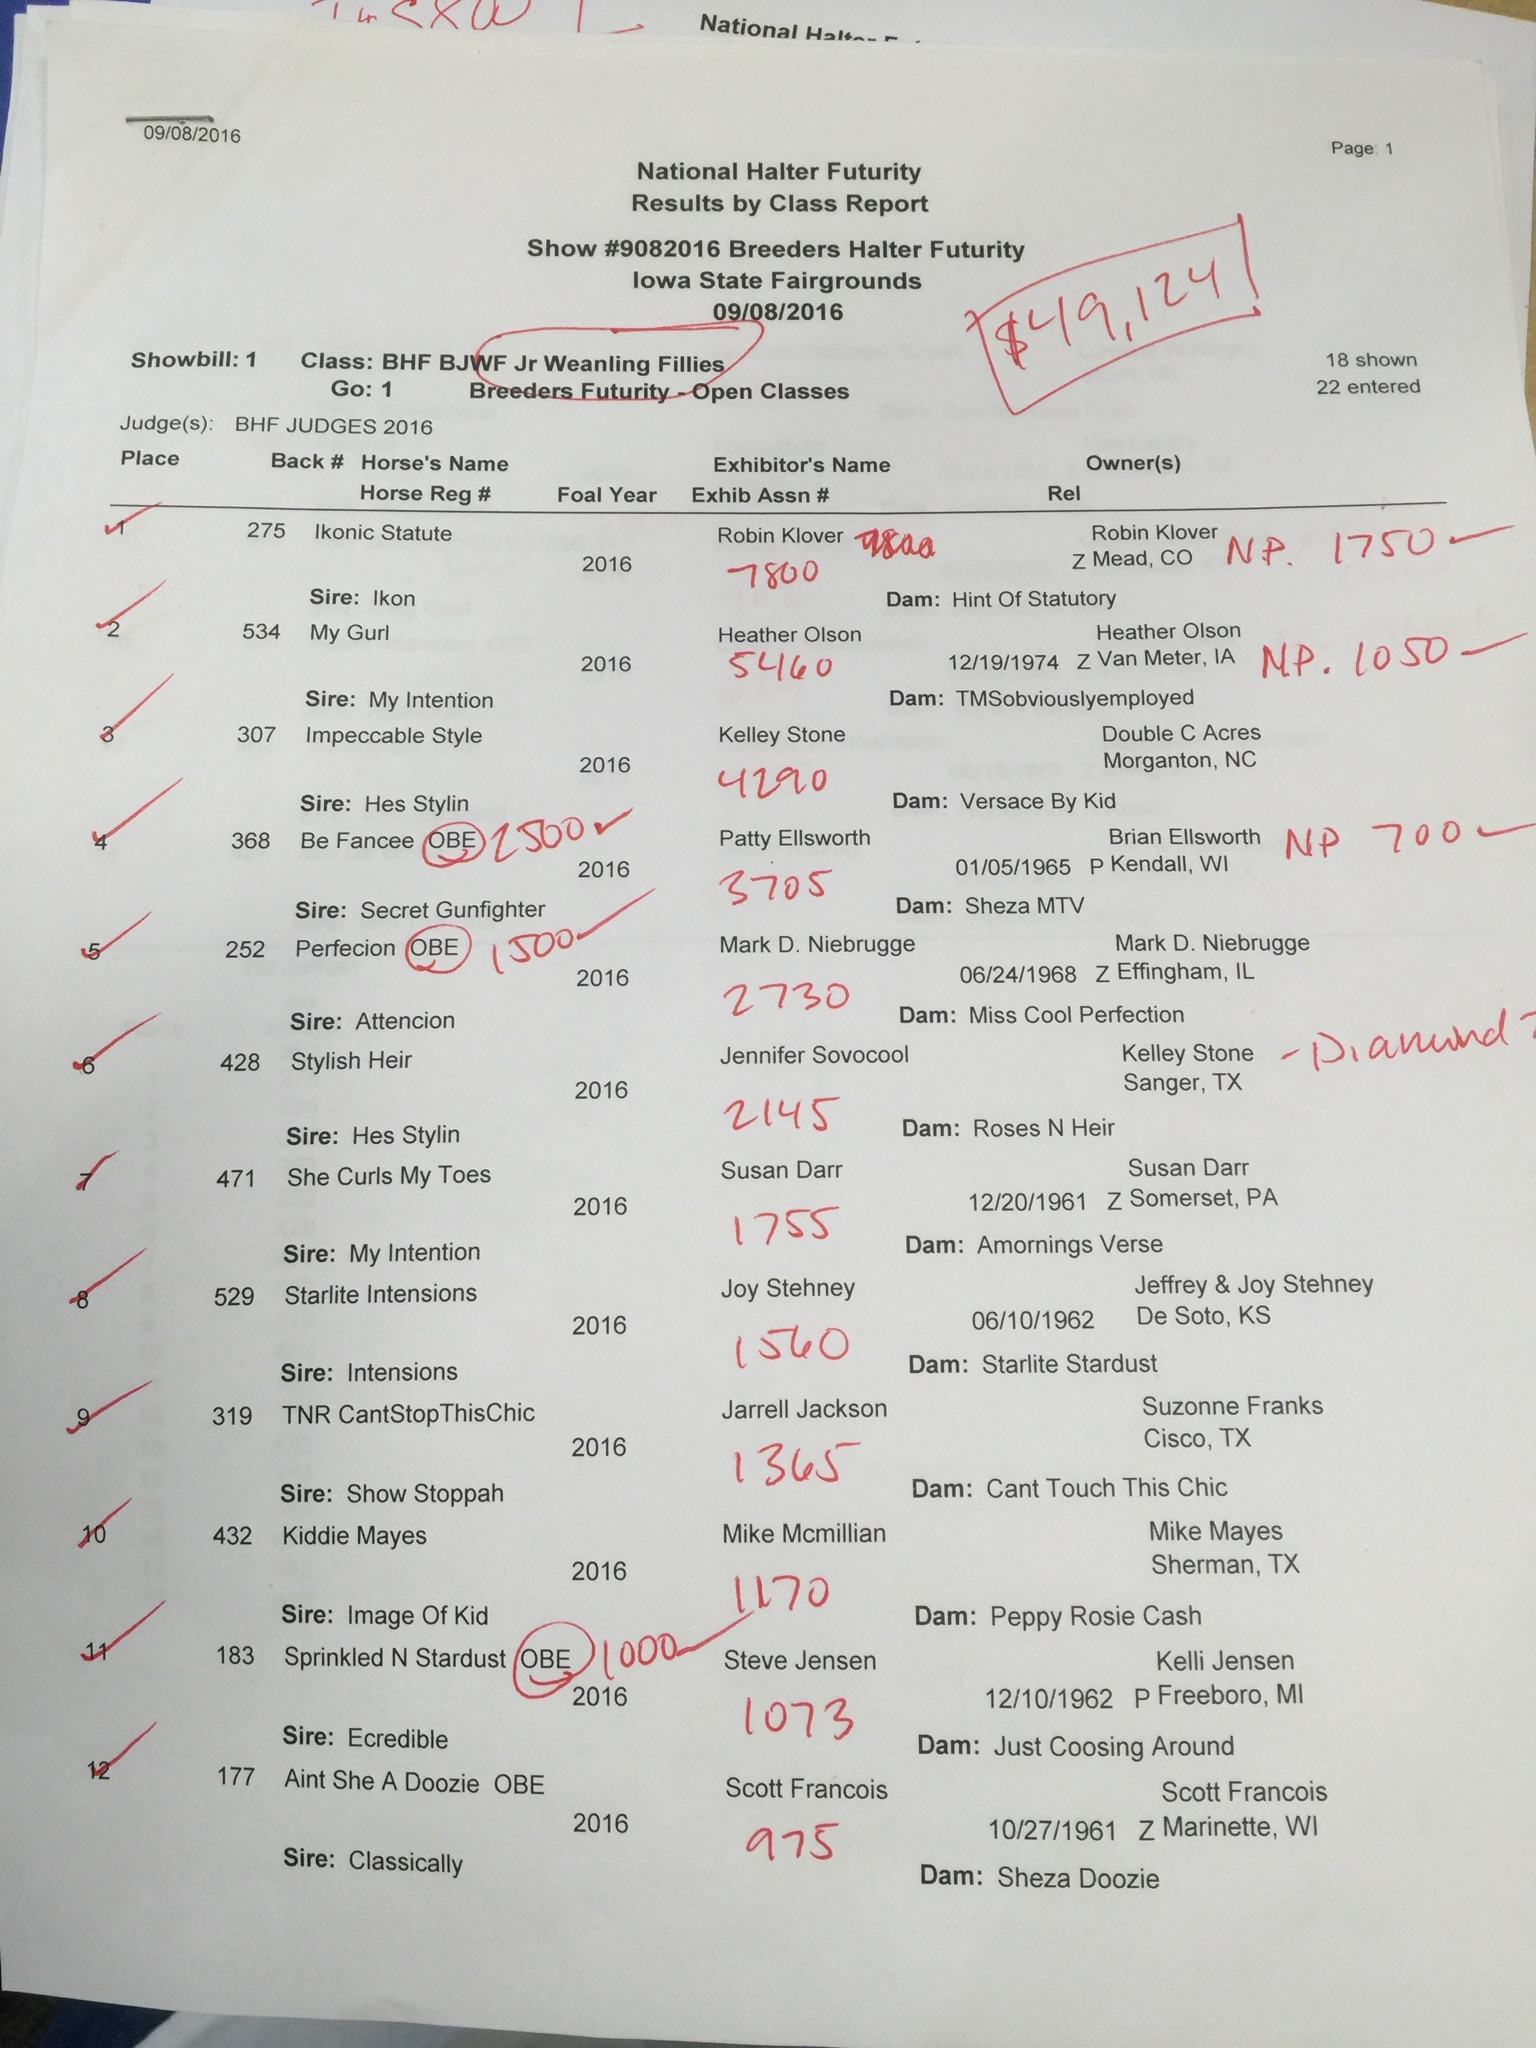 National Halter
09/08/2016
Page: 1
National Halter Futurity
Results by Class Report
Show #9082016 Breeders Halter Futurity
Iowa State Fairgrounds
09/08/2016
$49,124
Showbill: 1 Class: BHF BJWF Jr Weanling Fillies 18 shown
Go: 1 Breeders Futurity - Open Classes 22 entered
Judge(s): BHF JUDGES 2016
Place Back # Horse's Name Exhibitor's Name Owner(s)
Horse Reg # Foal Year Exhib Assn # Rel
1 275 Ikonic Statute Robin Klover Robin Klover
2016 7800 Z Mead, CO NP. 1750
Sire: Ikon Dam: Hint Of Statutory
2 534 My Gurl Heather Olson Heather Olson
2016 5460 12/19/1974 Z Van Meter, IA NP. 1050
Sire: My Intention Dam: TMSobviouslyemployed
3 307 Impeccable Style Kelley Stone Double C Acres
2016 4290 Morganton, NC
Sire: Hes Stylin Dam: Versace By Kid
4 368 Be Fancee OBE 2500 Patty Ellsworth Brian Ellsworth NP 700
2016 3705 01/05/1965 P Kendall, WI
Sire: Secret Gunfighter Dam: Sheza MTV
5 252 Perfecion OBE 1500 Mark D. Niebrugge Mark D. Niebrugge
2016 2730 06/24/1968 Z Effingham, IL
Sire: Attencion Dam: Miss Cool Perfection
6 428 Stylish Heir Jennifer Sovocool Kelley Stone - Diamond
2016 2145 Sanger, TX
Sire: Hes Stylin Dam: Roses N Heir
7 471 She Curls My Toes Susan Darr Susan Darr
2016 1755 12/20/1961 Z Somerset, PA
Sire: My Intention Dam: Amornings Verse
8 529 Starlite Intensions Joy Stehney Jeffrey & Joy Stehney
2016 1560 06/10/1962 De Soto, KS
Sire: Intensions Dam: Starlite Stardust
9 319 TNR CantStopThisChic Jarrell Jackson Suzonne Franks
2016 1365 Cisco, TX
Sire: Show Stoppah Dam: Cant Touch This Chic
10 432 Kiddie Mayes Mike Mcmillian Mike Mayes
2016 1170 Sherman, TX
Sire: Image Of Kid Dam: Peppy Rosie Cash
11 183 Sprinkled N Stardust OBE 1000 Steve Jensen Kelli Jensen
2016 1073 12/10/1962 P Freeboro, MI
Sire: Ecredible Dam: Just Coosing Around
12 177 Aint She A Doozie OBE Scott Francois Scott Francois
2016 975 10/27/1961 Z Marinette, WI
Sire: Classically Dam: Sheza Doozie